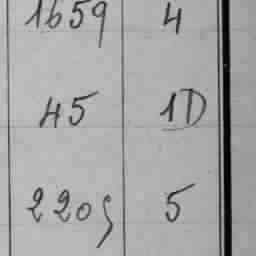 1659 4
45 1D
2205 5